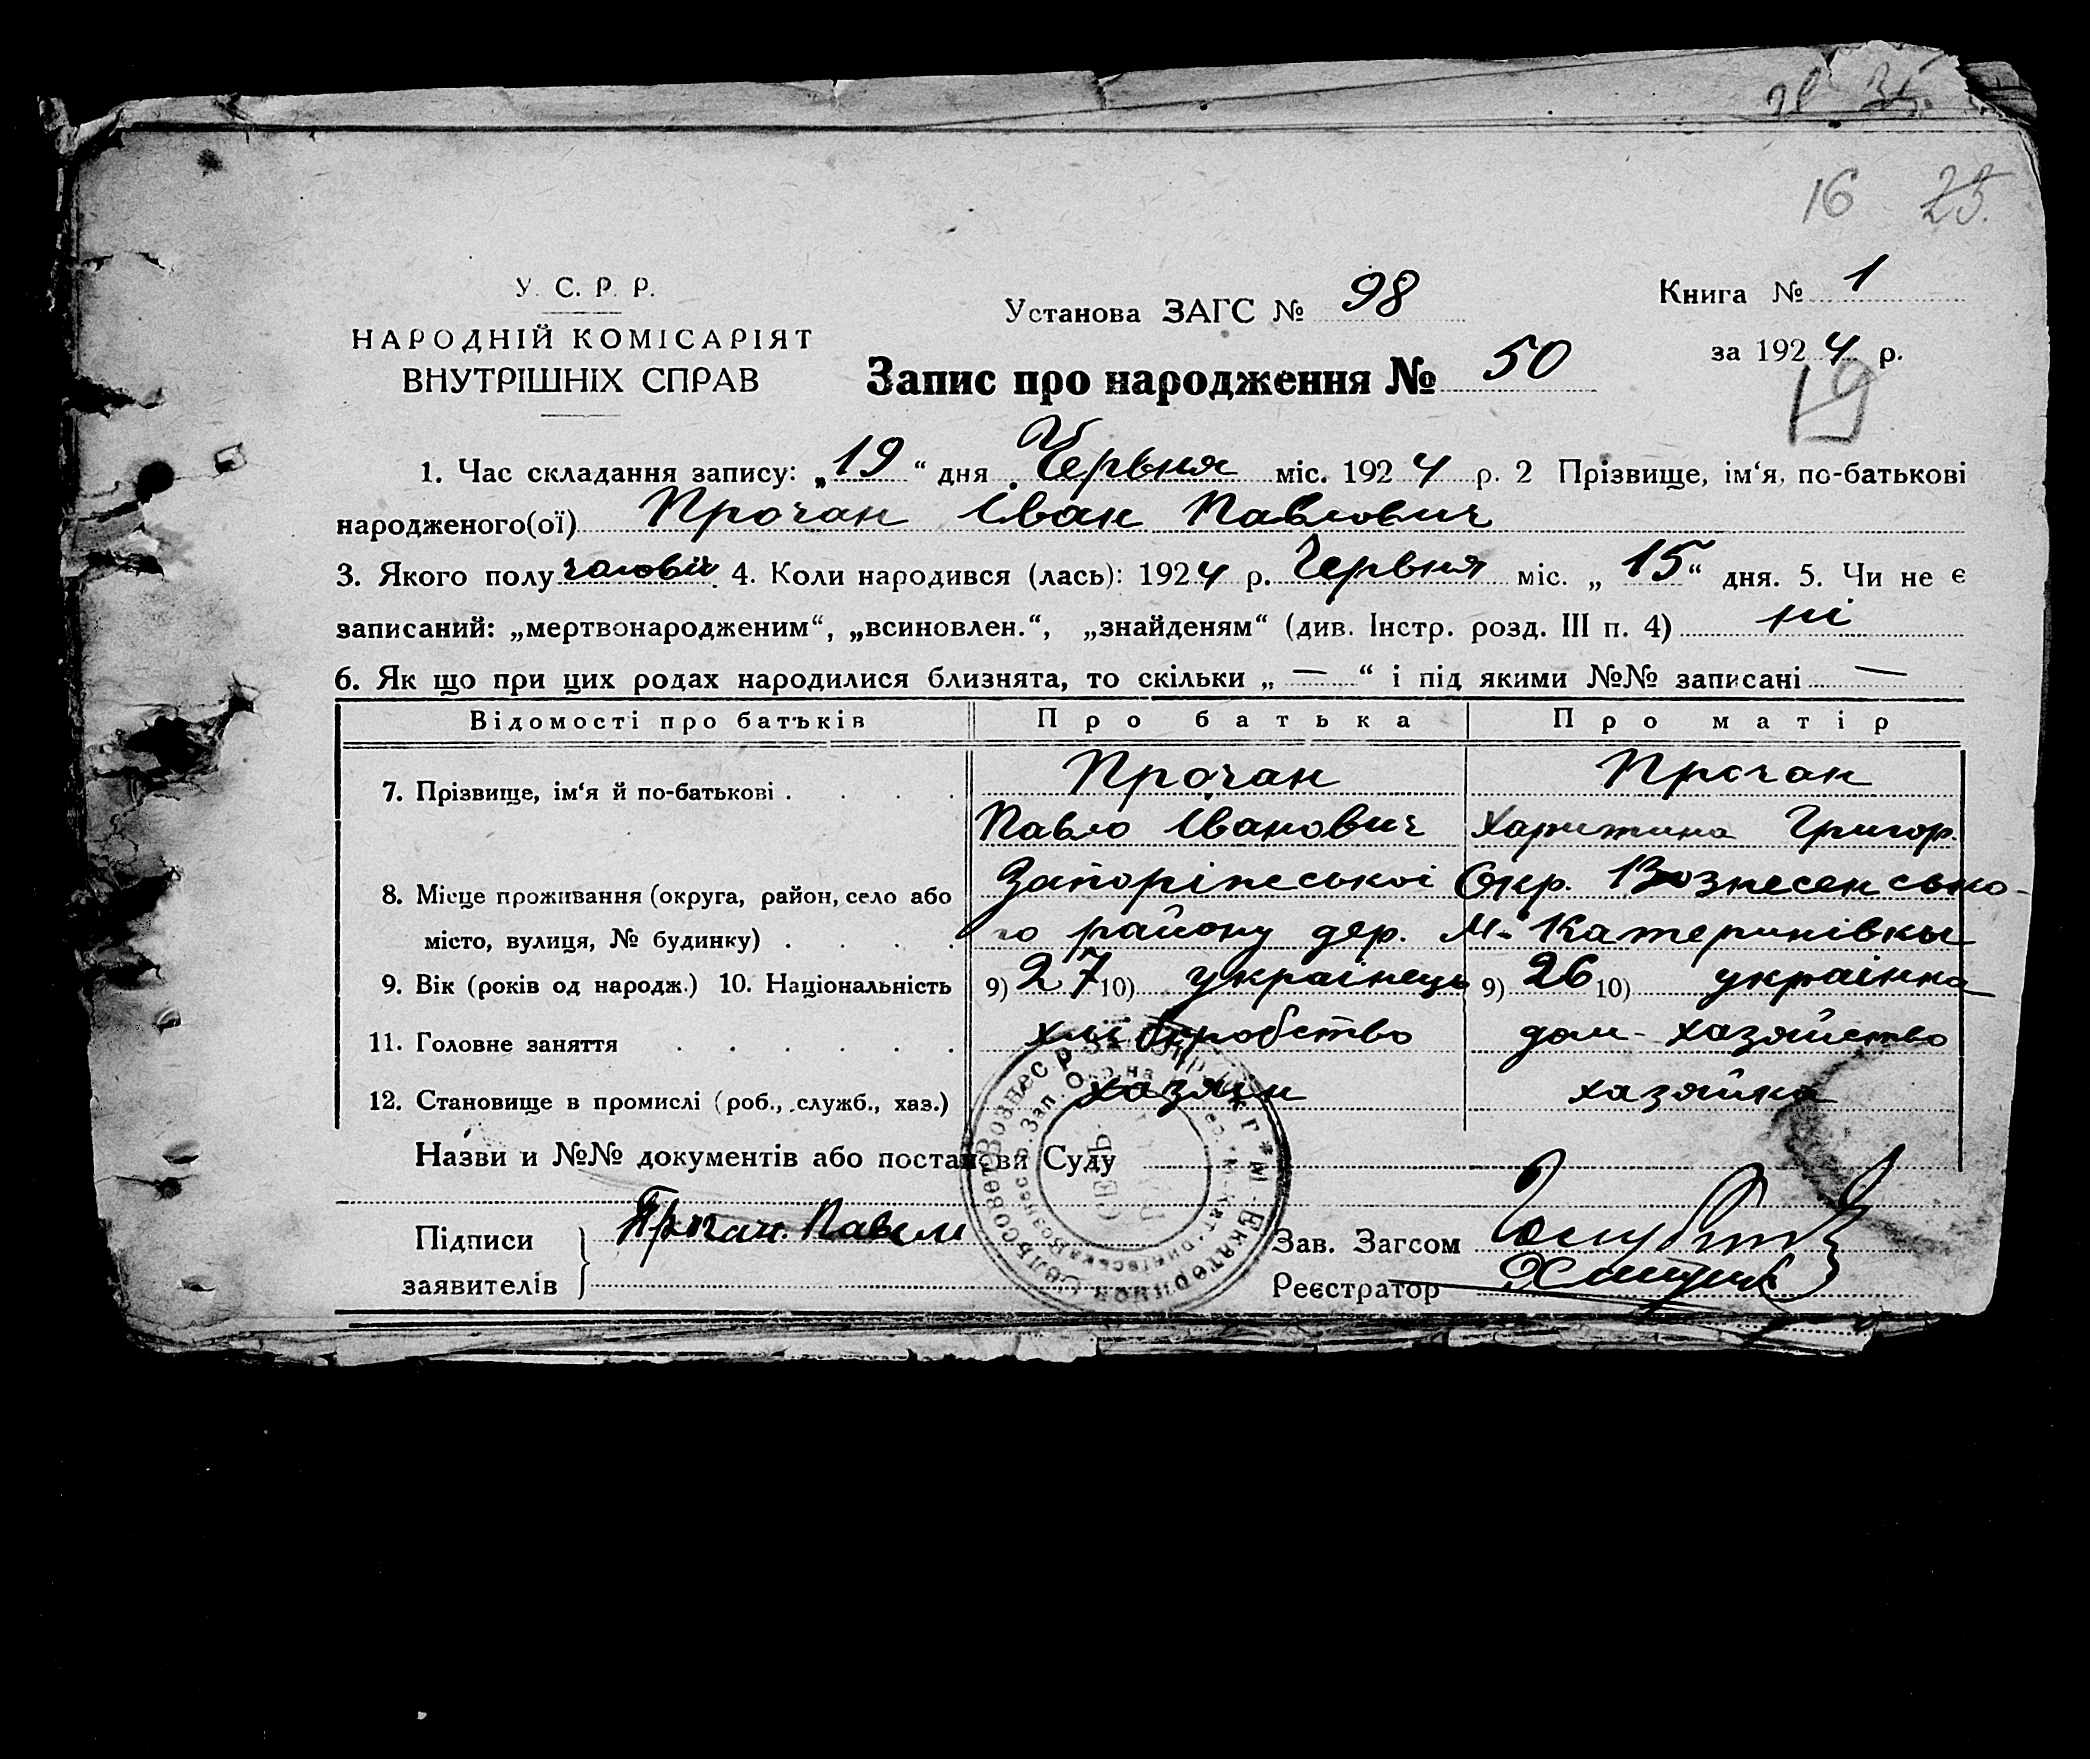 35
16 25.
У. С. Р. Р.
НАРОДНІЙ КОМІСАРІЯТ
ВНУТРІШНІХ СПРАВ
Установа ЗАГС № 98
Книга № 1
за 1924 р.
Запис про народження № 50
19
1. Час складання запису: „19“ дня Червня міс. 1924 р. 2 Прізвище, ім‘я, по-батькові
народженого(ої) Прочан Іван Павлович
3. Якого полу чоловій. 4. Коли народився (лась): 1924 р. Червня міс. „15“ дня. 5. Чи не є
записаний: „мертвонародженим“, „всиновлен.“, „знайденям“ (див. Інстр. розд. III п. 4) ні
6. Як що при цих родах народилися близнята, то скільки „—“ і під якими №№ записані —
Відомості про батьків Про батька Про матір
7. Прізвище, ім‘я й по-батькові . . . . Прочан Прочан
Павло Іванович Харитина Григор.
8. Місце проживання (округа, район, село або Запоріжської Окр. Вознесенсько-
місто, вулиця, № будинку) . . . . го району дер. М-Катеринівкы
9. Вік (років од народж.) 10. Національність 9) 27 10) українець 9) 26 10) українка
11. Головне заняття . . . . . . хлібкробство дом-хазяйство
12. Становище в промислі (роб., служб., хаз.) хазяін хазяйка
Назви и №№ документів або постанови Суду
Підписи Прочан. Павел
заявителів
Зав. Загсом
Реєстратор